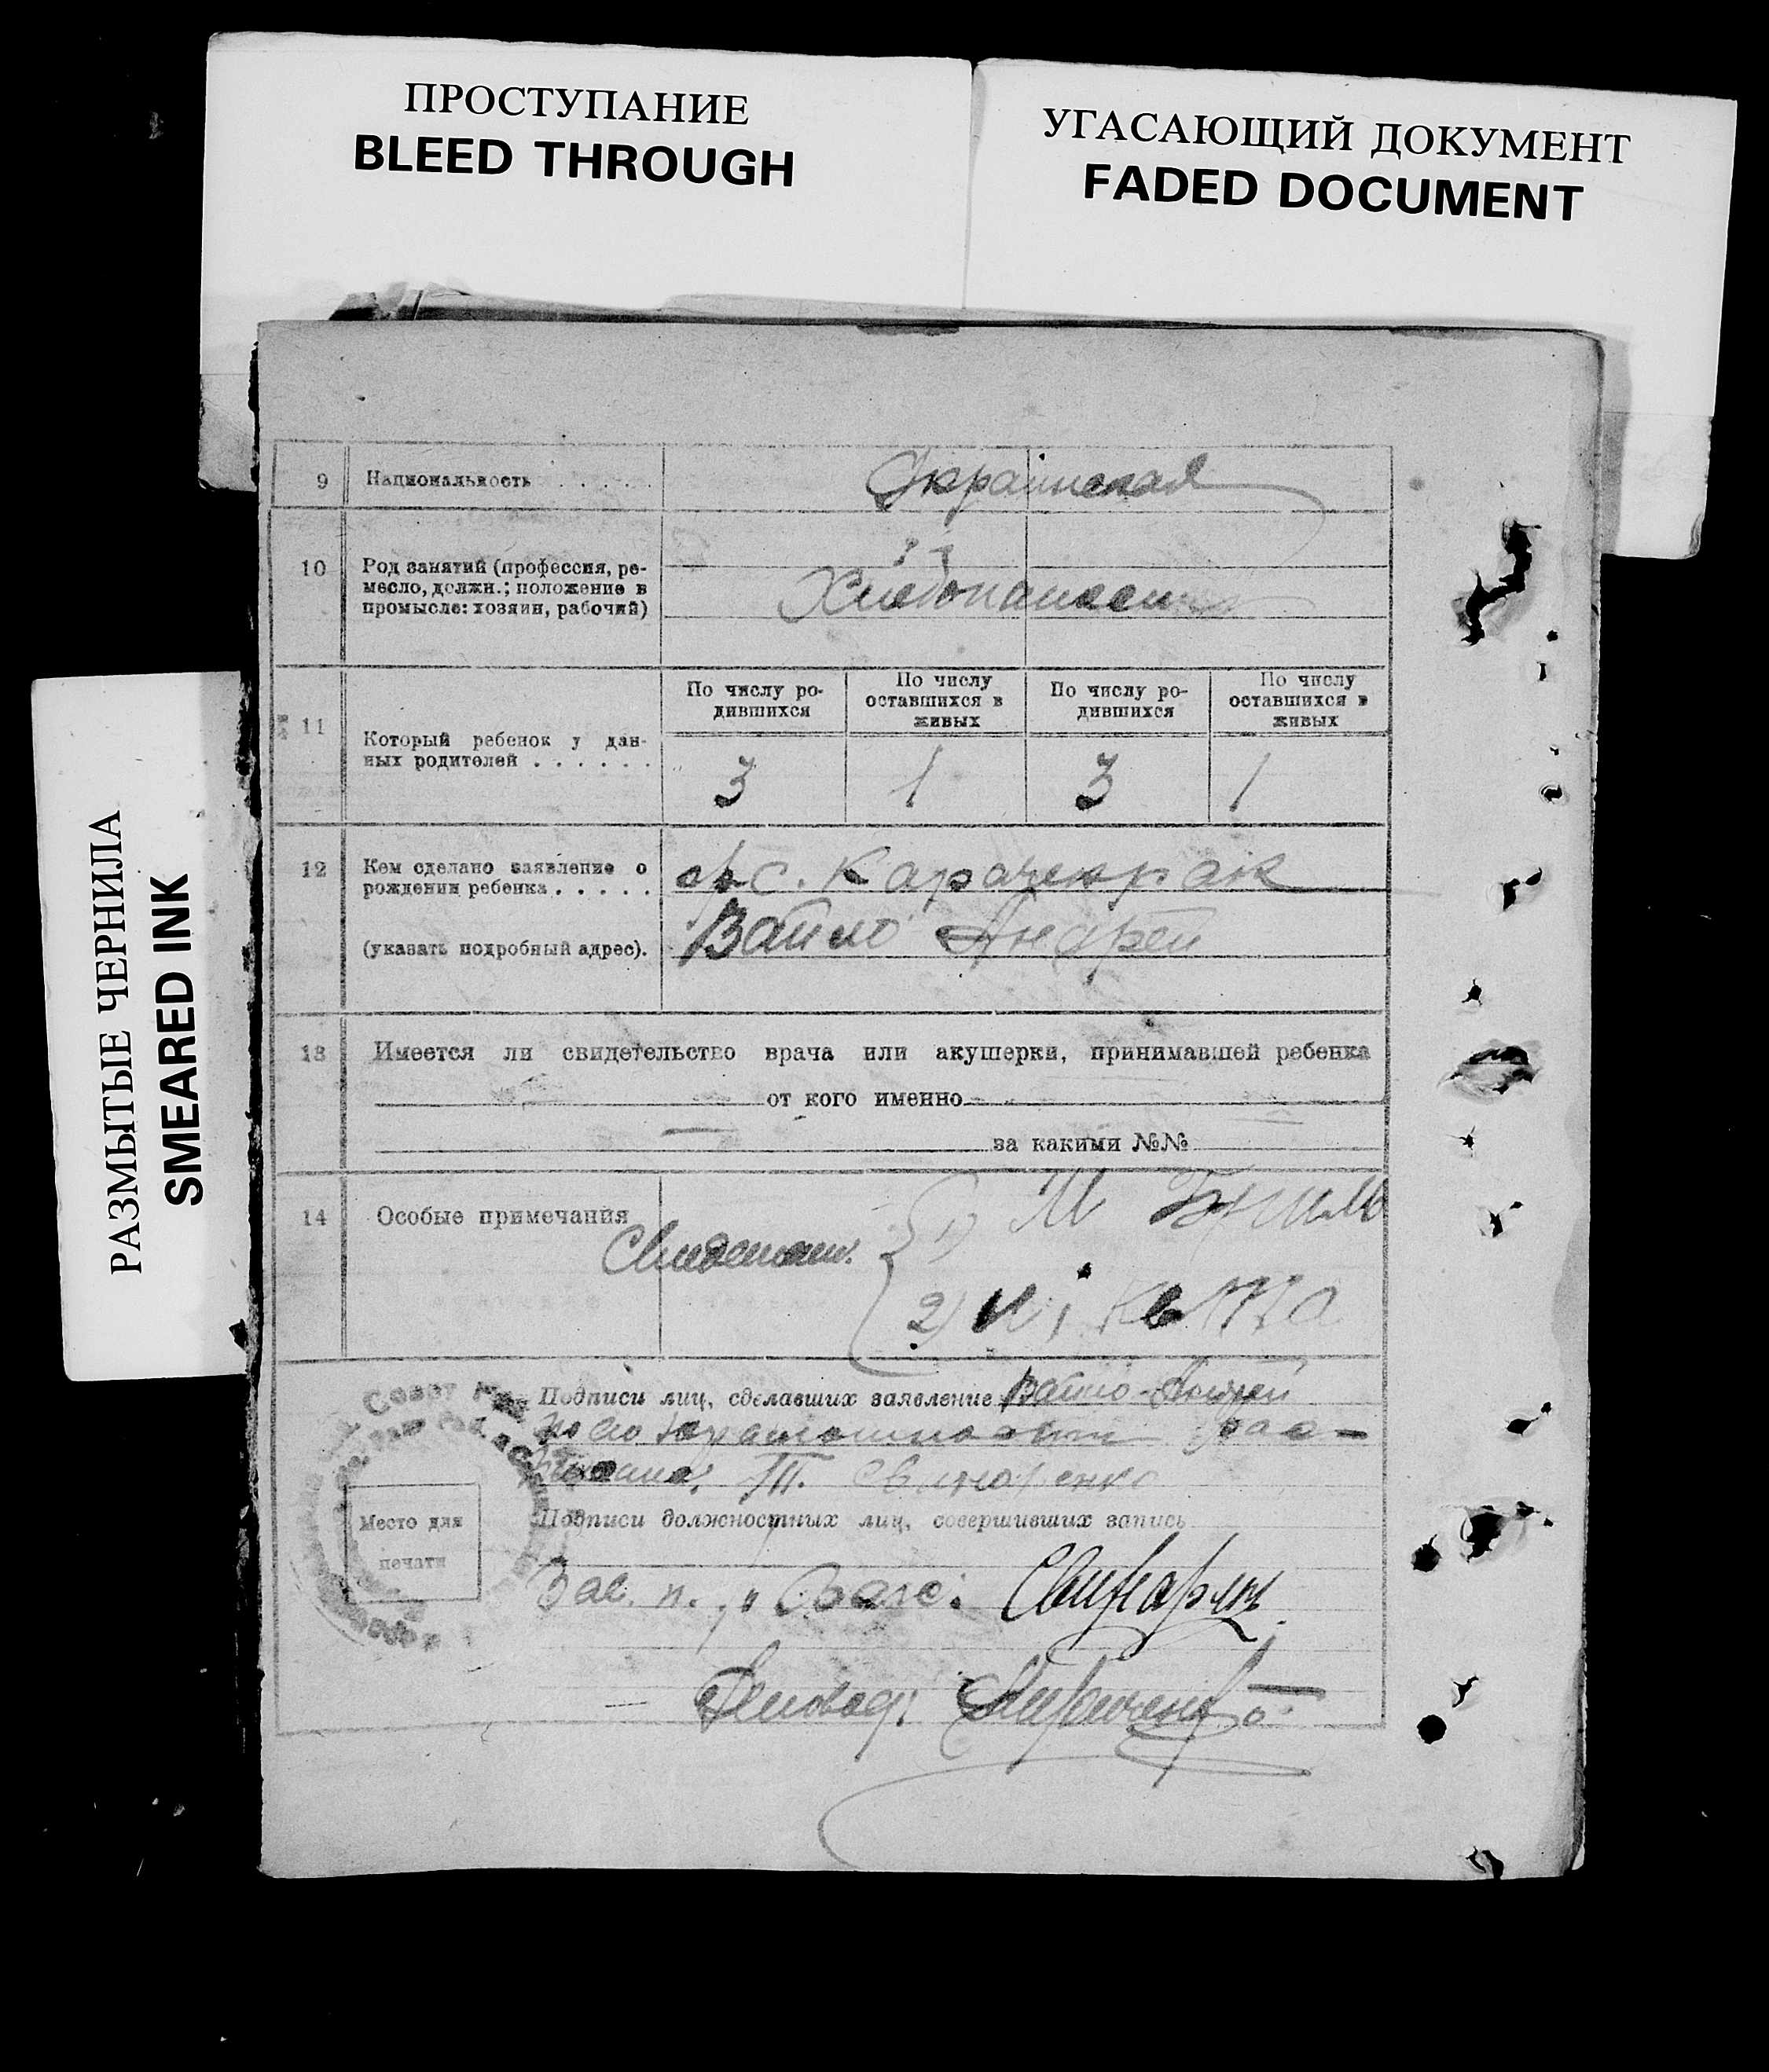 ПРОСТУПАНИЕ
BLEED THROUGH
УГАСАЮЩИЙ ДОКУМЕНТ
FADED DOCUMENT
РАЗМЫТЫЕ ЧЕРНИЛА
SMEARED INK
9 Национальность . . . . . . Украинская
10 Род занятий (профессия, ре-
месло, должн.; положение в
промысле: хозяин, рабочий)
11 Который ребенок у дан-
ных родителей . . . . . .
По числу ро-
дившихся
По числу
оставшихся в
живых
По числу ро-
дившихся
По числу
оставшихся в
живых
3 1 3 1
12 Кем сделано заявление о
рождении ребенка . . . . .
(указать подробный адрес).
гр. с. Карачекрак
Вайло Андрей
13 Имеется ли свидетельство врача или акушерки, принимавшей ребенка
от кого именно
за какими №№
14 Особые примечания
1) М
2)
Подписи лиц, сделавших заявление Вайло Андрей
Подписи должностных лиц, совершивших запись
Место для
печати
Зав. п.